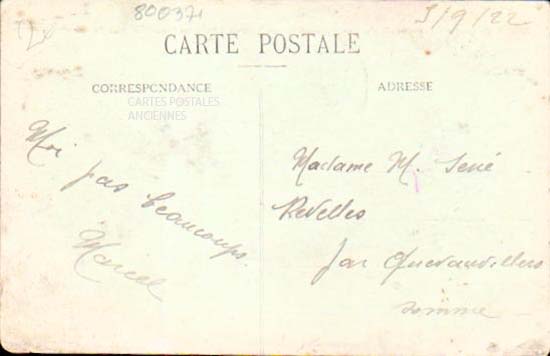 800371
5/9/22
CARTE POSTALE
CORRESPONDANCE
ADRESSE
CARTES POSTALES
ANCIENNES
Moi
pas beaucoups.
Marcel
Madame M.
Revelles
par Quevauvillers
Somme